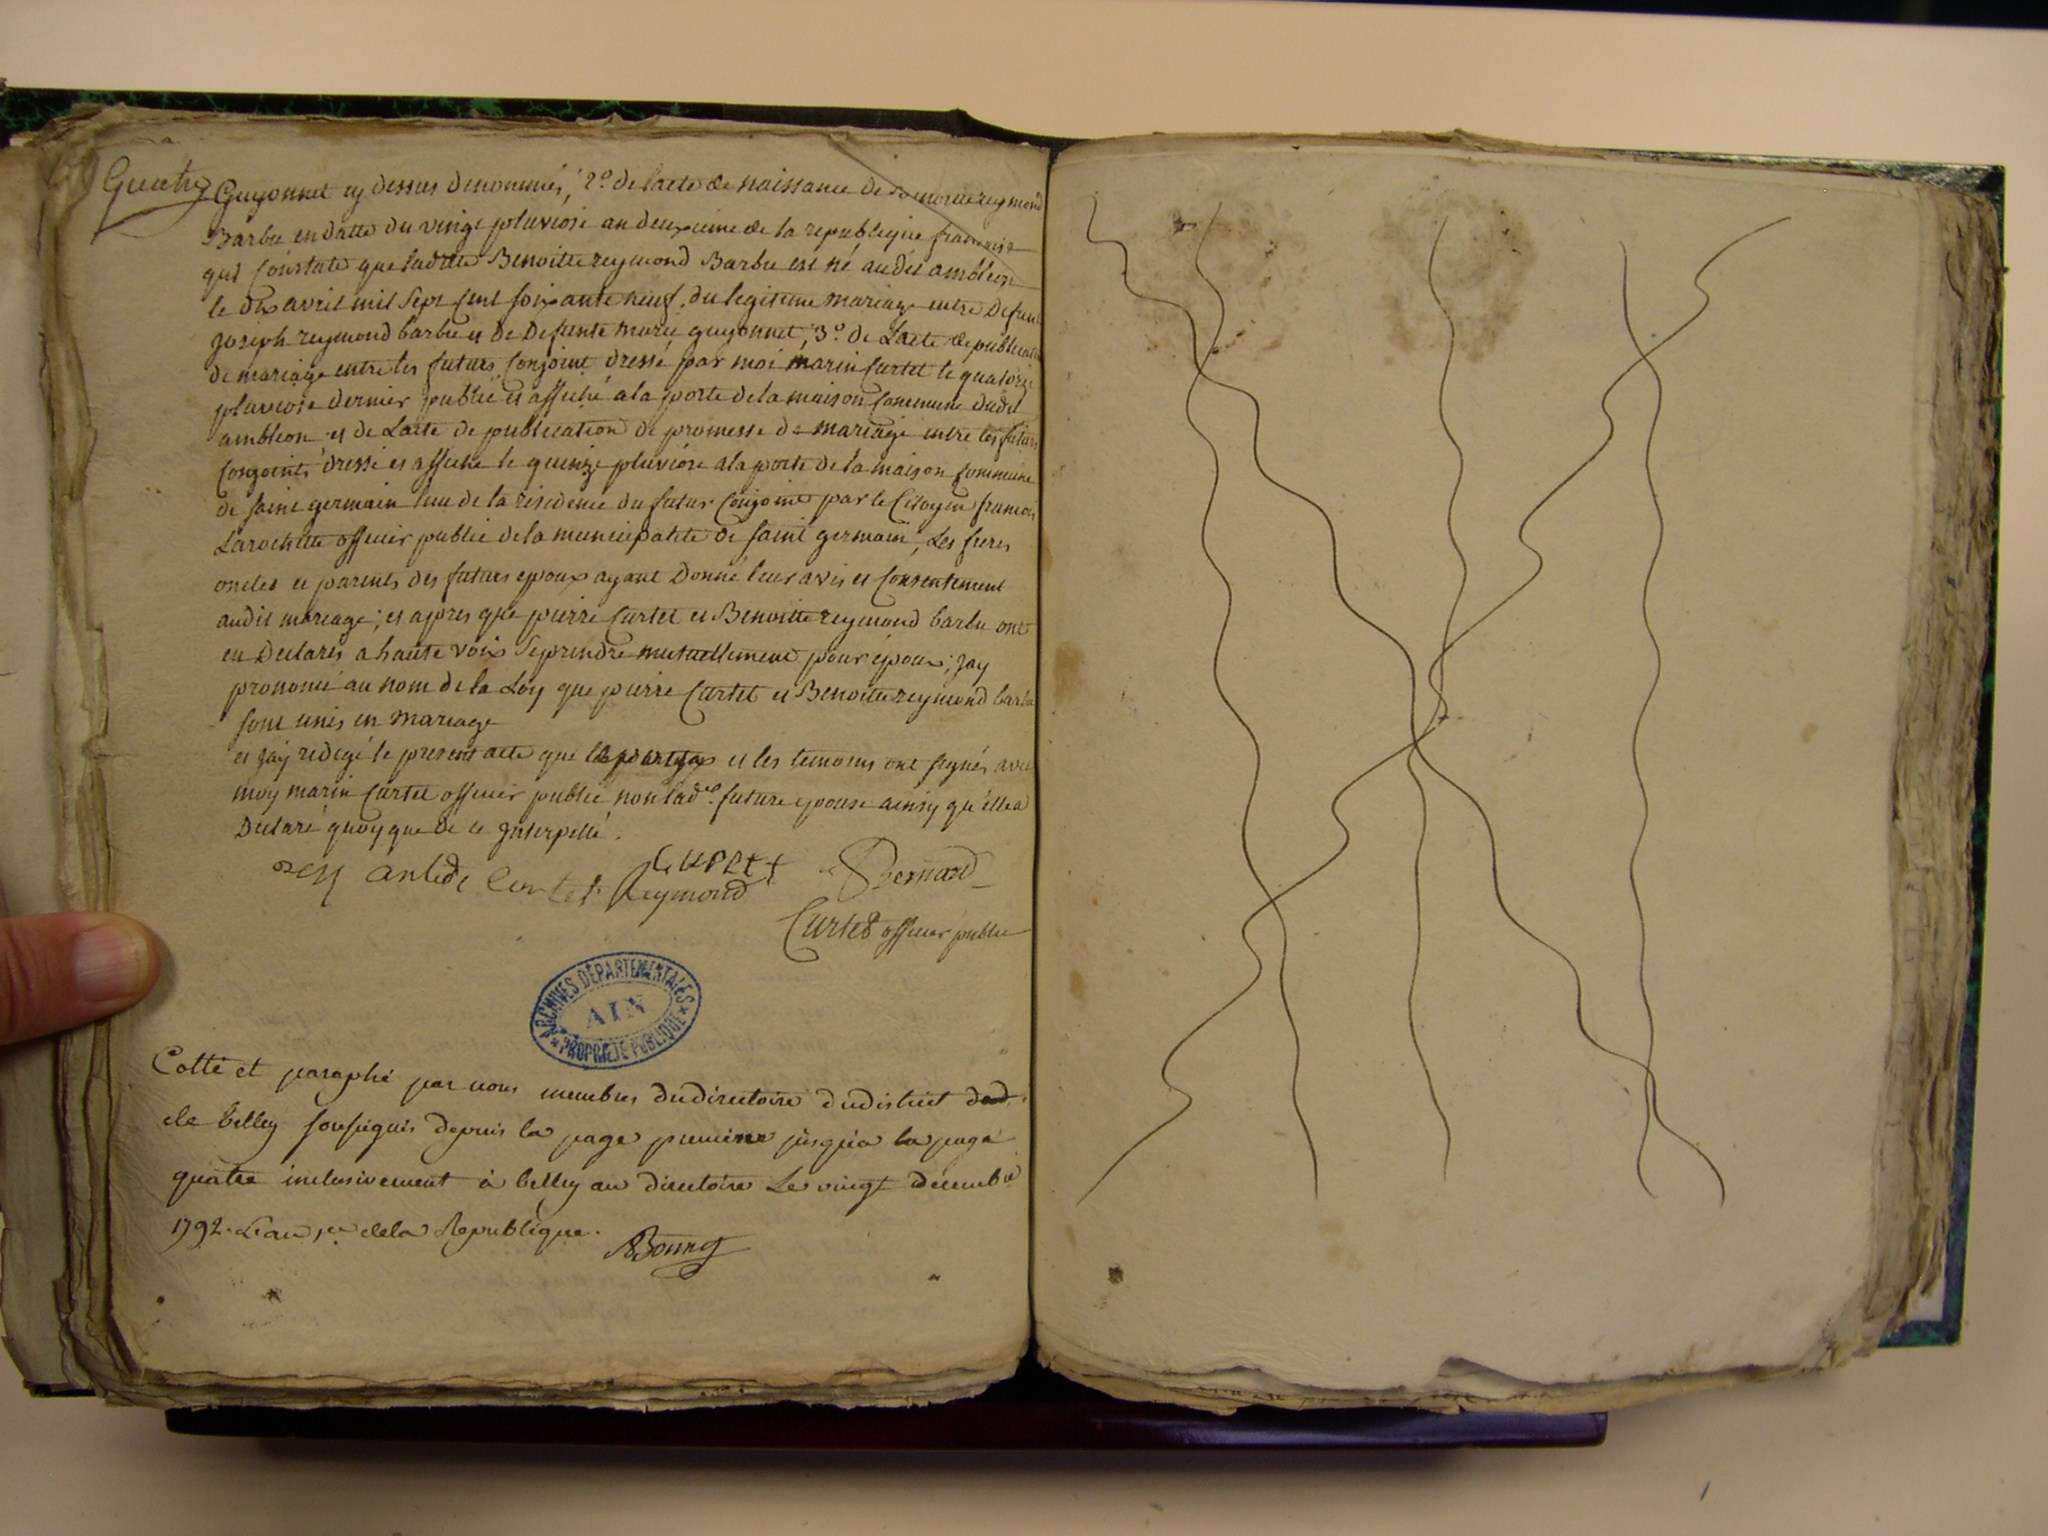 Quatre
Guyonnet cy dessus denommés, 2.º de lacte de naissance de Benoitte reymond
Barbu en datte du vingt pluviose an deuxieme de la republique francaise
qui Constate que laditte Benoitte reymond Barbu est né audit ambleon
le dix avril mil Sept Cent soixante neuf, du legitime mariage entre Defunt
joseph reymond barbu et de Defunte marie guyonnet, 3.º de Lacte de publication
de mariage entre les futurs Conjoint dressé par moi marin Curtet le quatorze
pluviose dernier publié et affiché a la porte de la maison Commune dudit
ambleon et de Lacte de publication de promesse de mariage entre les futurs
Conjoints dressé et affiché le quinze pluviose a la porte de la maison Commune
de saint germain lieu de la residence du futur Conjoint par le Citoyen francois
Larochette officier public de la municipalité de saint germain, Les freres
oncles et parents des futurs epoux ayant Donné leur avis et Consentement
audit mariage; et apres que pierre Curtet et Benoitte reymond barbu ont
eu Declarés a haute voix Se prendre mutuellement pour époux; jay
prononcé au nom de la Loy que pierre Curtet et Benoitte reymond barbu
sont unis en mariage
et jay redigé le present acte que et les temoins ont signés avec
moy marin Curtet officier public non lad.e future epouse ainsy qu'elle a
Déclaré quoyque de ce Interpellé.
Curtet Bernard
Curtet Reymond
Curtet officier public
ARCHIVES DÉPARTEMENTALES
AIN
PROPRIÉTÉ PUBLIQUE
Cotté et paraphé par nous membres du directoire du district
de belley soussignés depuis la page premiere jusqu'a la page
quatre inclusivement à belley au directoire Le vingt décembre
1792. L'an 1er de la Republique.